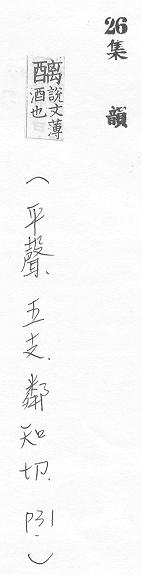 26集韻
醨說文薄酒也
(平聲、五支、鄰知切、P31.)